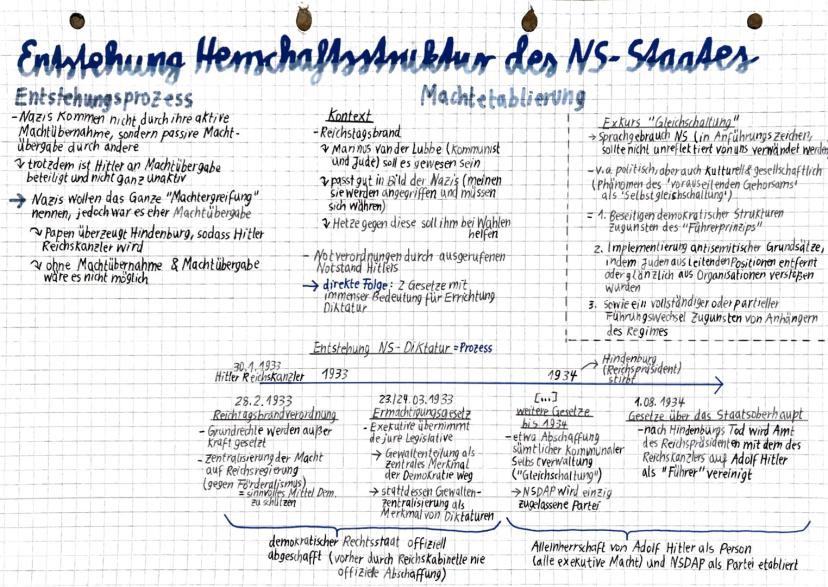 Entstehung Herrschaftsstruktur des NS-Staates
Entstehungsprozess
- Nazis kommen nicht durch ihre aktive
Machtübernahme, sondern passive Macht-
übergabe durch andere
↳ trotzdem ist Hitler an Machtübergabe
beteiligt und nicht ganz unaktiv
→ Nazis wollen das Ganze "Machtergreifung"
nennen, jedoch war es eher Machtübergabe
↳ Papen überzeugt Hindenburg, sodass Hitler
Reichskanzler wird
↳ ohne Machtübernahme & Machtübergabe
wäre es nicht möglich
Machtetablierung
Kontext
- Reichstagsbrand
↳ Marinus van der Lubbe (Kommunist
und Jude) soll es gewesen sein
↳ passt gut in Bild der Nazis (meinen
sie werden angegriffen und müssen
sich währen)
↳ Hetze gegen diese soll ihm bei Wahlen
helfen
- Notverordnungen durch ausgerufenen
Notstand Hitlers
→ direkte Folge: 2 Gesetze mit
immenser Bedeutung für Errichtung
Diktatur
Exkurs "Gleichschaltung"
→ Sprachgebrauch NS (in Anführungszeichen,
sollte nicht unreflektiert von uns verwändet werden
- v.a. politisch, aber auch kulturell & gesellschaftlich
(Phänomen des 'vorauseilenden Gehorsams'
als 'Selbstgleichschaltung')
= 1. Beseitigen demokratischer Strukturen
zugunsten des "Führerprinzips"
2. Implementierung antisemitischer Grundsätze,
indem Juden aus leitenden Positionen entfernt
oder glänzlich aus Organisationen verstoßen
wurden
3. sowie ein vollständiger oder partieller
Führungswechsel zugunsten von Anhängern
des Regimes
Entstehung NS-Diktatur = Prozess
30.1.1933
Hitler Reichskanzler
1933
1934
→ Hindenburg
(Reichspräsident)
stirbt
28.2.1933
Reichtagsbrandverordnung
- Grundrechte werden außer
Kraft gesetzt
- Zentralisierung der Macht
auf Reichsregierung
(gegen Föderalismus)
= sinnvolles Mittel Dem.
zu schützen
23/24.03.1933
Ermächtigungsgesetz
- Exekutive übernimmt
de jure Legislative
→ Gewaltenteilung als
zentrales Merkmal
der Demokratie weg
→ stattdessen Gewalten-
zentralisierung als
Merkmal von Diktaturen
[...]
weitere Gesetze
bis 1934
- etwa Abschaffung
sämtlicher kommunaler
Selbstverwaltung
("Gleichschaltung")
→ NSDAP wird einzig
zugelassene Partei
1.08.1934
Gesetze über das Staatsoberhaupt
- nach Hindenburgs Tod wird Amt
des Reichspräsidenten mit dem des
Reichskanzlers auf Adolf Hitler
als "Führer" vereinigt
demokratischer Rechtsstaat offiziell
abgeschafft (vorher durch Reichskabinette nie
offizielle Abschaffung)
Alleinherrschaft von Adolf Hitler als Person
(alle exekutive Macht) und NSDAP als Partei etabliert